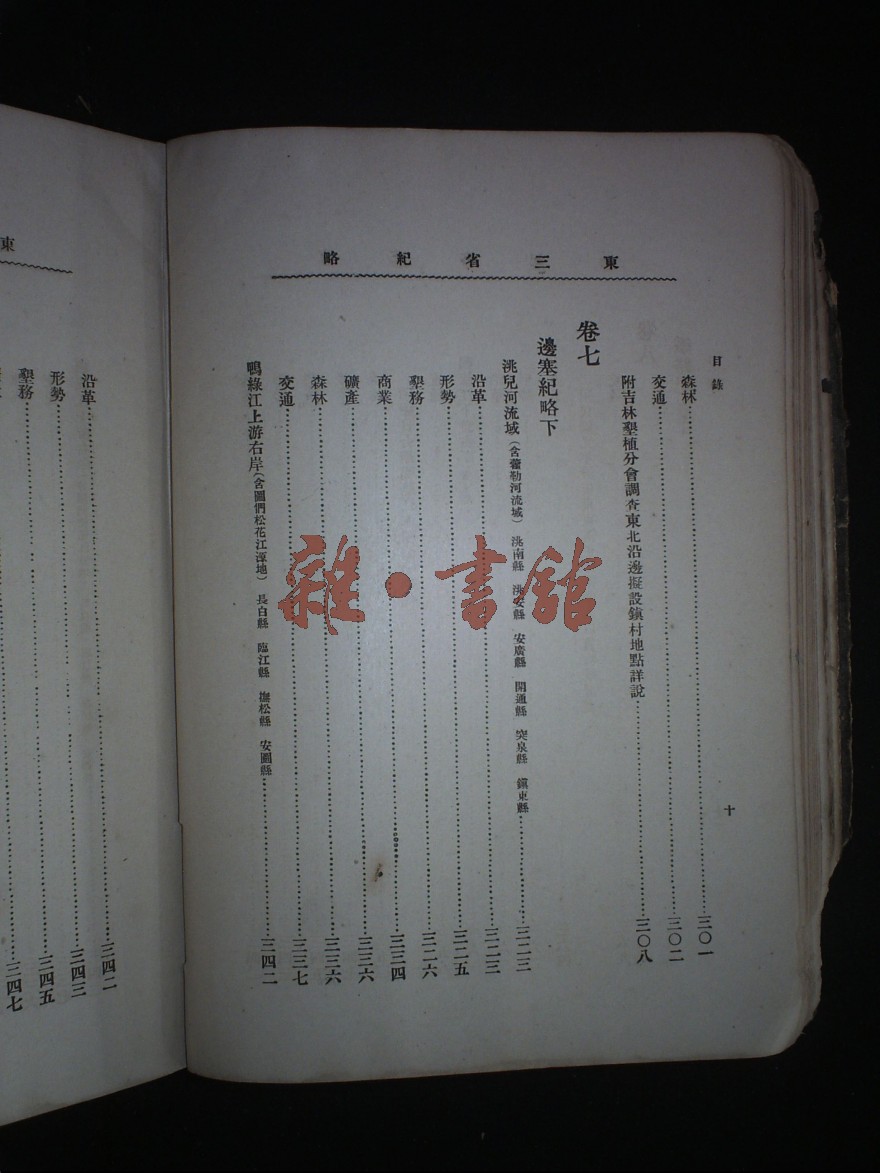 東三省紀略
目錄
森林……三〇一
交通……三〇二
附吉林墾植分會調查東北沿邊擬設鎮村地點詳說……三〇八
卷七
邊塞紀略下
洮兒河流域(含霍勒河流域) 洮南縣 洮安縣 安廣縣 開通縣 突泉縣 鎮東縣……三二三
沿革……三二三
形勢……三二五
墾務……三二六
商業……三三四
礦產……三三六
森林……三三六
交通……三三七
鴨綠江上游右岸(含圖們松花江源地) 長白縣 臨江縣 撫松縣 安圖縣……三四二
十
雜·書館
東
沿革……三四二
形勢……三四三
墾務……三四五
三四七